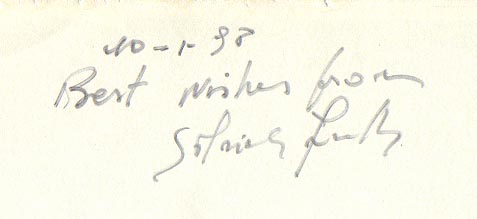 10-1-98
Best wishes from